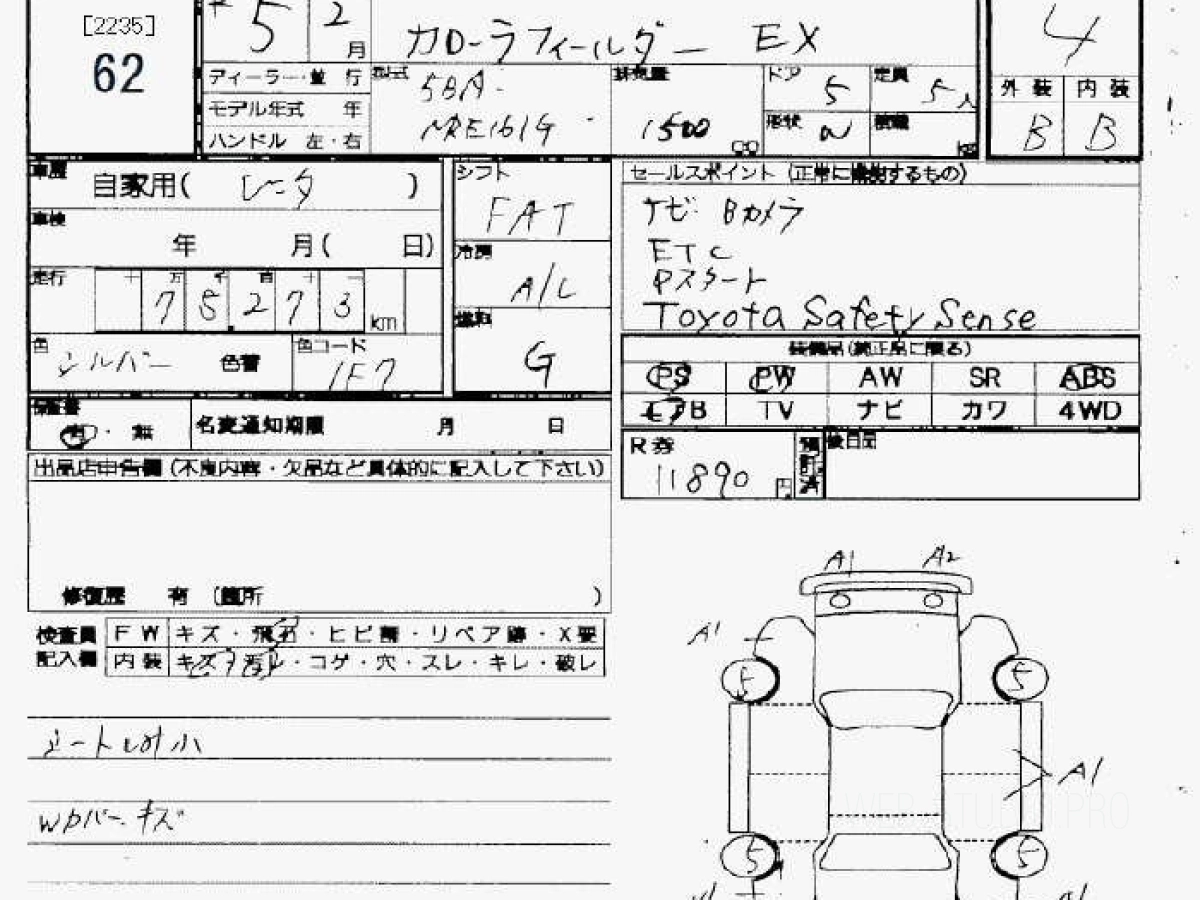 [2235]
62
5 2 月
カローラフィールダー EX
4
ディーラー・並 行
型式 5BA-
排気量
ドア 5
定員 5人
外 装 内 装
モデル年式 年
ハンドル 左・右
NRE161G
1500 cc
形状 W
積載
B B
車歴 自家用( レンタ )
シフト FAT
セールスポイント (正常に機能するもの)
ナビ Bカメラ
ETC
Pスタート
Toyota Safety Sense
車検 年 月( 日)
冷房 A/C
走行 十 万 千 百 十 一
7 5 2 7 3 km
燃料 G
色 シルバー 色替
色コード 1F7
装備品(純正品に限る)
PS PW AW SR ABS
エアB TV ナビ カワ 4WD
保証書 有・無
名変通知期限 月 日
R券 11890 円
預託済
後日品
出品店申告欄(不良内容・欠品など具体的に記入して下さい)
修復歴 有 (箇所 )
検査員記入欄
FW キズ・飛石・ヒビ割・リペア跡・X要
内装 キズ・汚レ・コゲ・穴・スレ・キレ・破レ
A1 A2
A1
5 5
A1
5 5
WEB STUDIO PRO